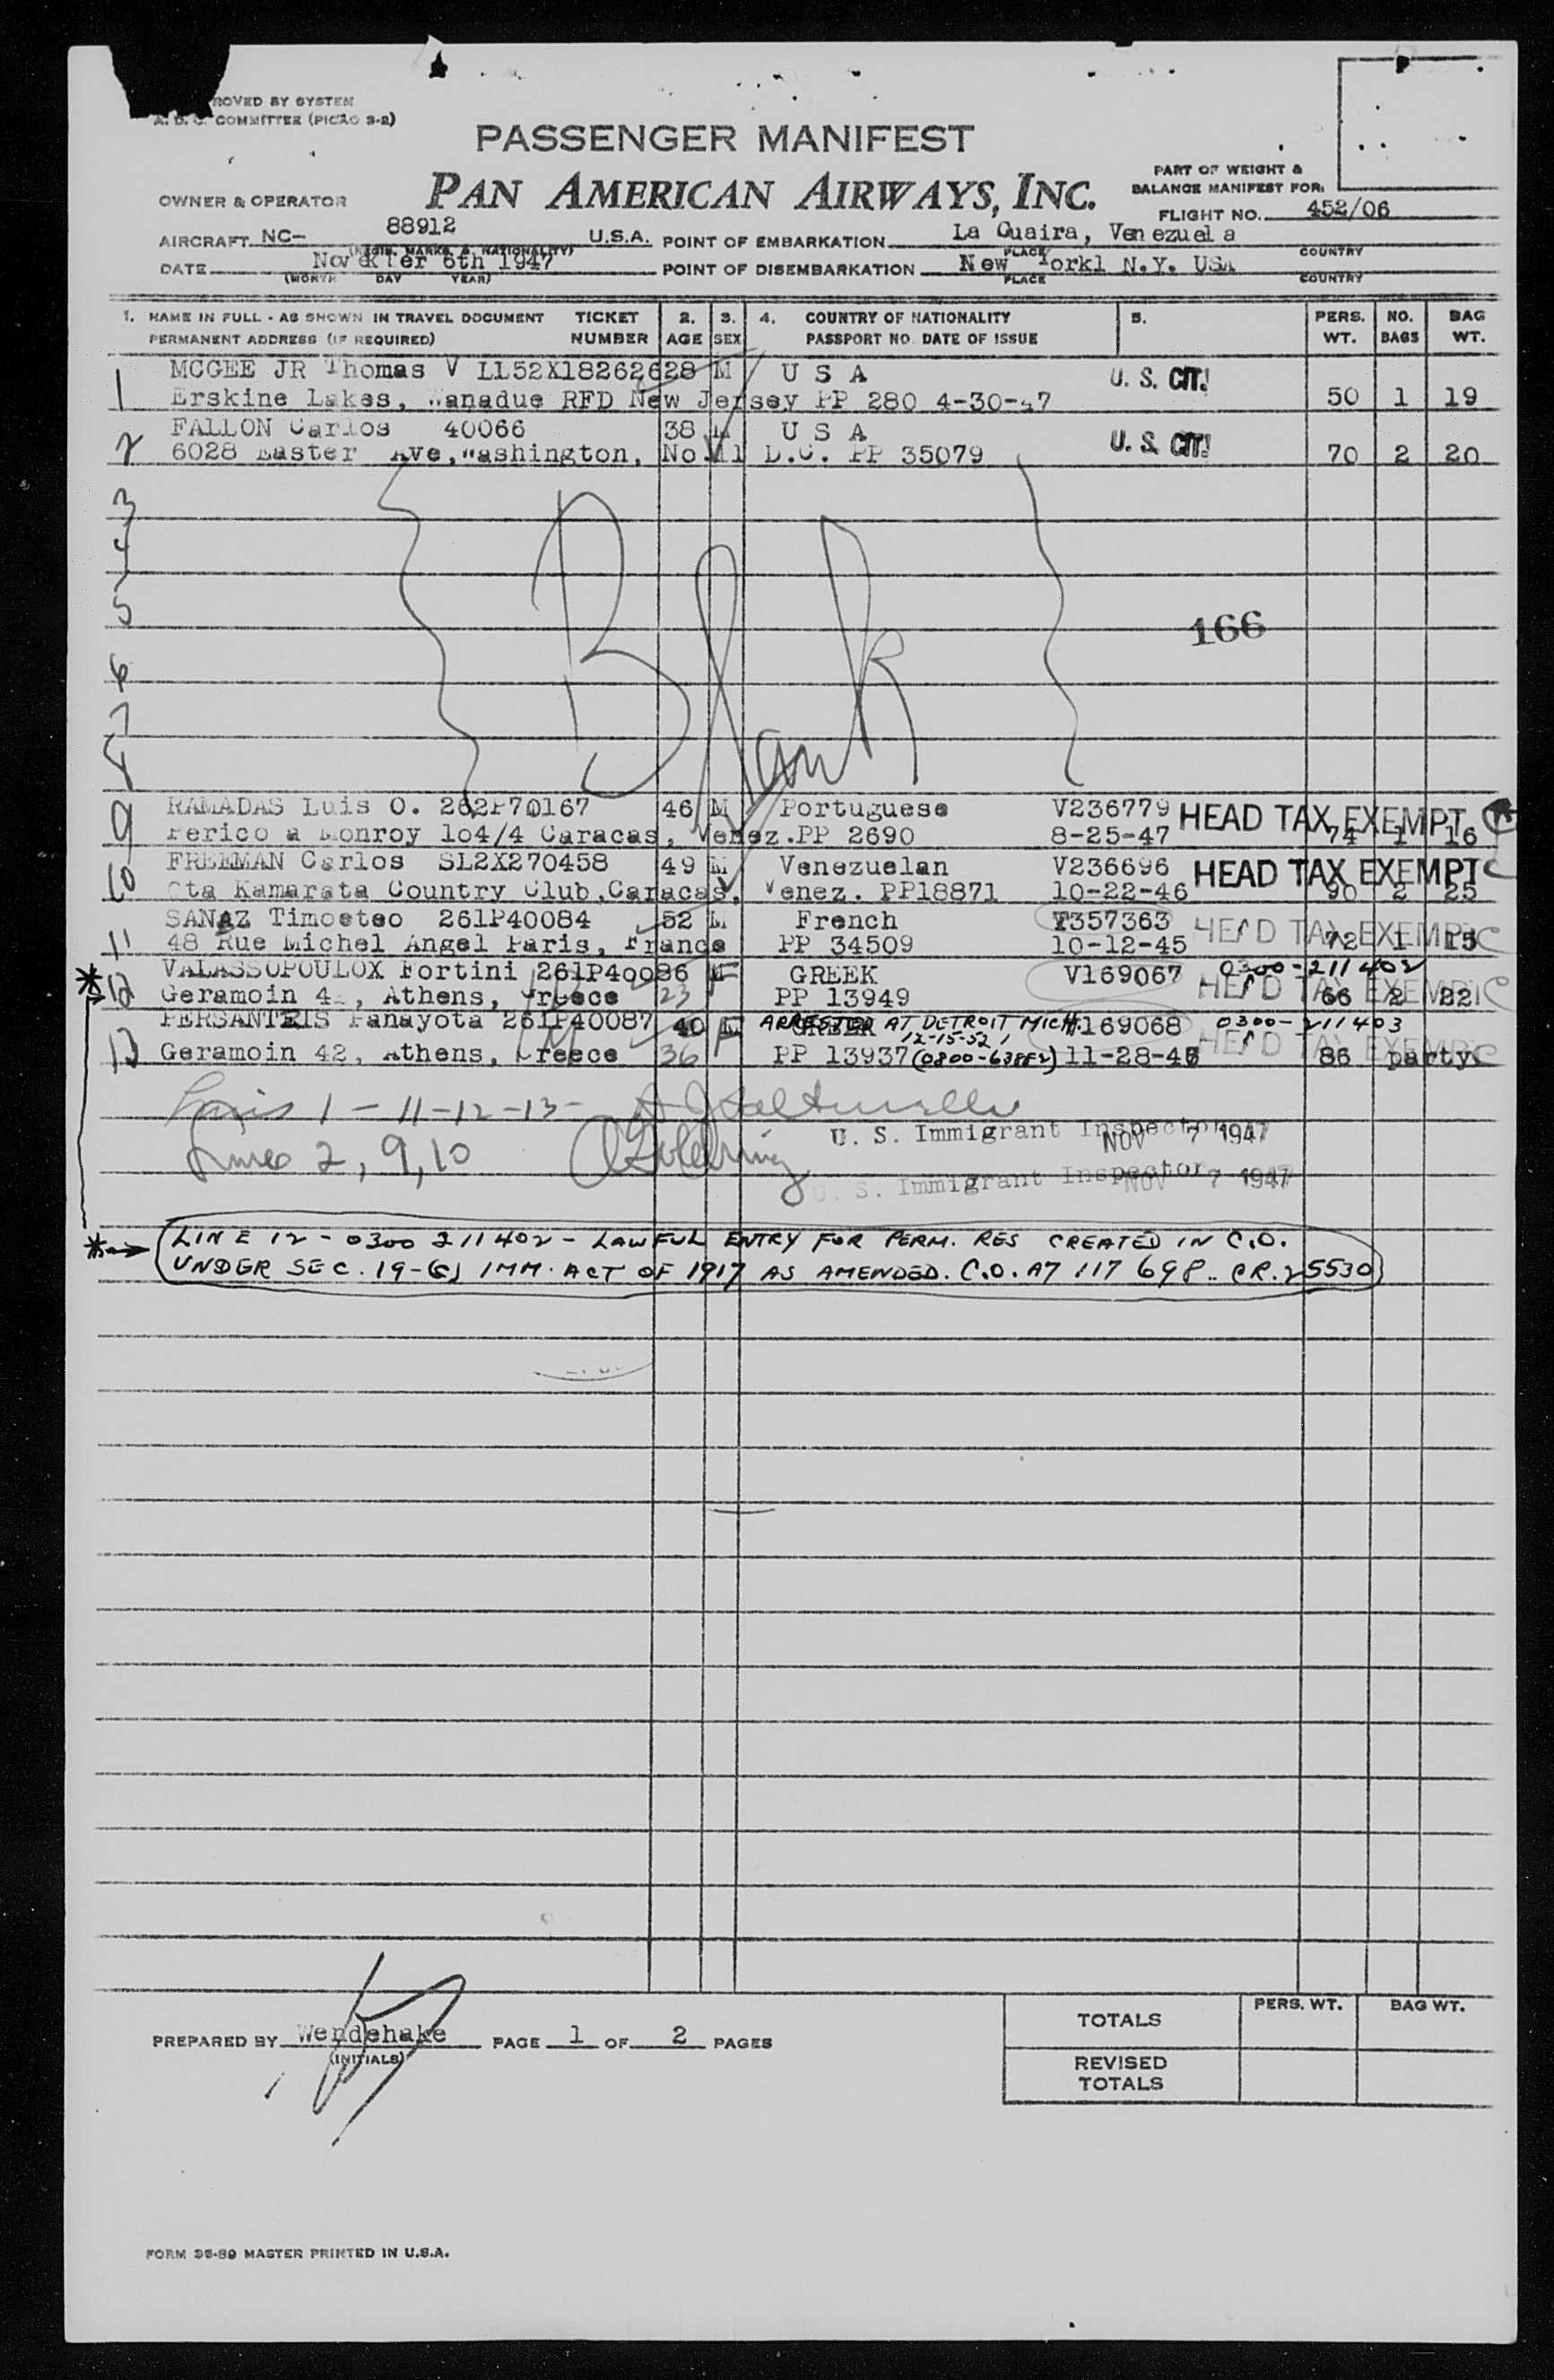 ROVED BY SYSTEM
A. D. C. COMMITTEE (PICAO 3-2)
PASSENGER MANIFEST
PAN AMERICAN AIRWAYS, INC.
PART OF WEIGHT &
BALANCE MANIFEST FOR:
OWNER & OPERATOR
FLIGHT NO. 452/06
AIRCRAFT NC- 88912 U.S.A. POINT OF EMBARKATION La Guaira, Venezuela
(REGIS. MARKS & NATIONALITY) PLACE COUNTRY
DATE 6th 1947 POINT OF DISEMBARKATION New Yorkl N.Y. USA
(MONTH DAY YEAR) PLACE COUNTRY
1. NAME IN FULL - AS SHOWN IN TRAVEL DOCUMENT TICKET 2. 3. 4. COUNTRY OF NATIONALITY 5. PERS. NO. BAG
PERMANENT ADDRESS (IF REQUIRED) NUMBER AGE SEX PASSPORT NO. DATE OF ISSUE WT. BAGS WT.
MCGEE JR Thomas V LL52X18262628 M U S A U. S. CIT.
1 Erskine Lakes, Wanadue RFD New Jersey PP 280 4-30-47 50 1 19
FALLON Carlos 40066 38 M U S A U. S. CIT.
2 6028 Easter Ave, Washington, D.C. PP 35079 70 2 20
3
4
5
166
6
7
8
Blank
RAMADAS Luis O. 262P70167 46 M Portuguese V236779 HEAD TAX EXEMPT
9 Perico a Monroy 104/4 Caracas, Venez. PP 2690 8-25-47 74 1 16
FREEMAN Carlos SL2X270458 49 M Venezuelan V236696 HEAD TAX EXEMPT C
10 Qta Kamarata Country Club, Caracas, Venez. PP18871 10-22-46 90 2 25
SANAZ Timoeteo 261P40084 52 M French 357363 HEAD TAX EXEMPT C
11 48 Rue Michel Angel Paris, France PP 34509 10-12-45 72 1 15
VALASSOPOULOX Fortini 261P40086 F GREEK V169067 0300-211402
12 Geramoin 4, Athens, Greece 23 PP 13949 HEAD TAX EXEMPT C 66 2 22
PERSANTZIS Panayota 261P40087 40 F GREEK ARRESTED AT DETROIT MICH. V169068 0300-211403
12-15-52
13 Geramoin 42, Athens, Greece 36 PP 13937 (0800-63852) 11-28-4 HEAD TAX EXEMPT C 86 party
1 - 11-12-13-
U. S. Immigrant Inspector NOV 7 1947
Lines 2, 9, 10
U. S. Immigrant Inspector NOV 7 1947
LINE 12 - 0300 211402 - LAWFUL ENTRY FOR PERM. RES CREATED IN C.O.
UNDER SEC. 19-(C) IMM. ACT OF 1917 AS AMENDED. C.O. A7 117 698.. CR. 25530
PERS. WT. BAG WT.
TOTALS
PREPARED BY Wendehake PAGE 1 OF 2 PAGES
(INITIALS)
REVISED
TOTALS
FORM 35-89 MASTER PRINTED IN U.S.A.